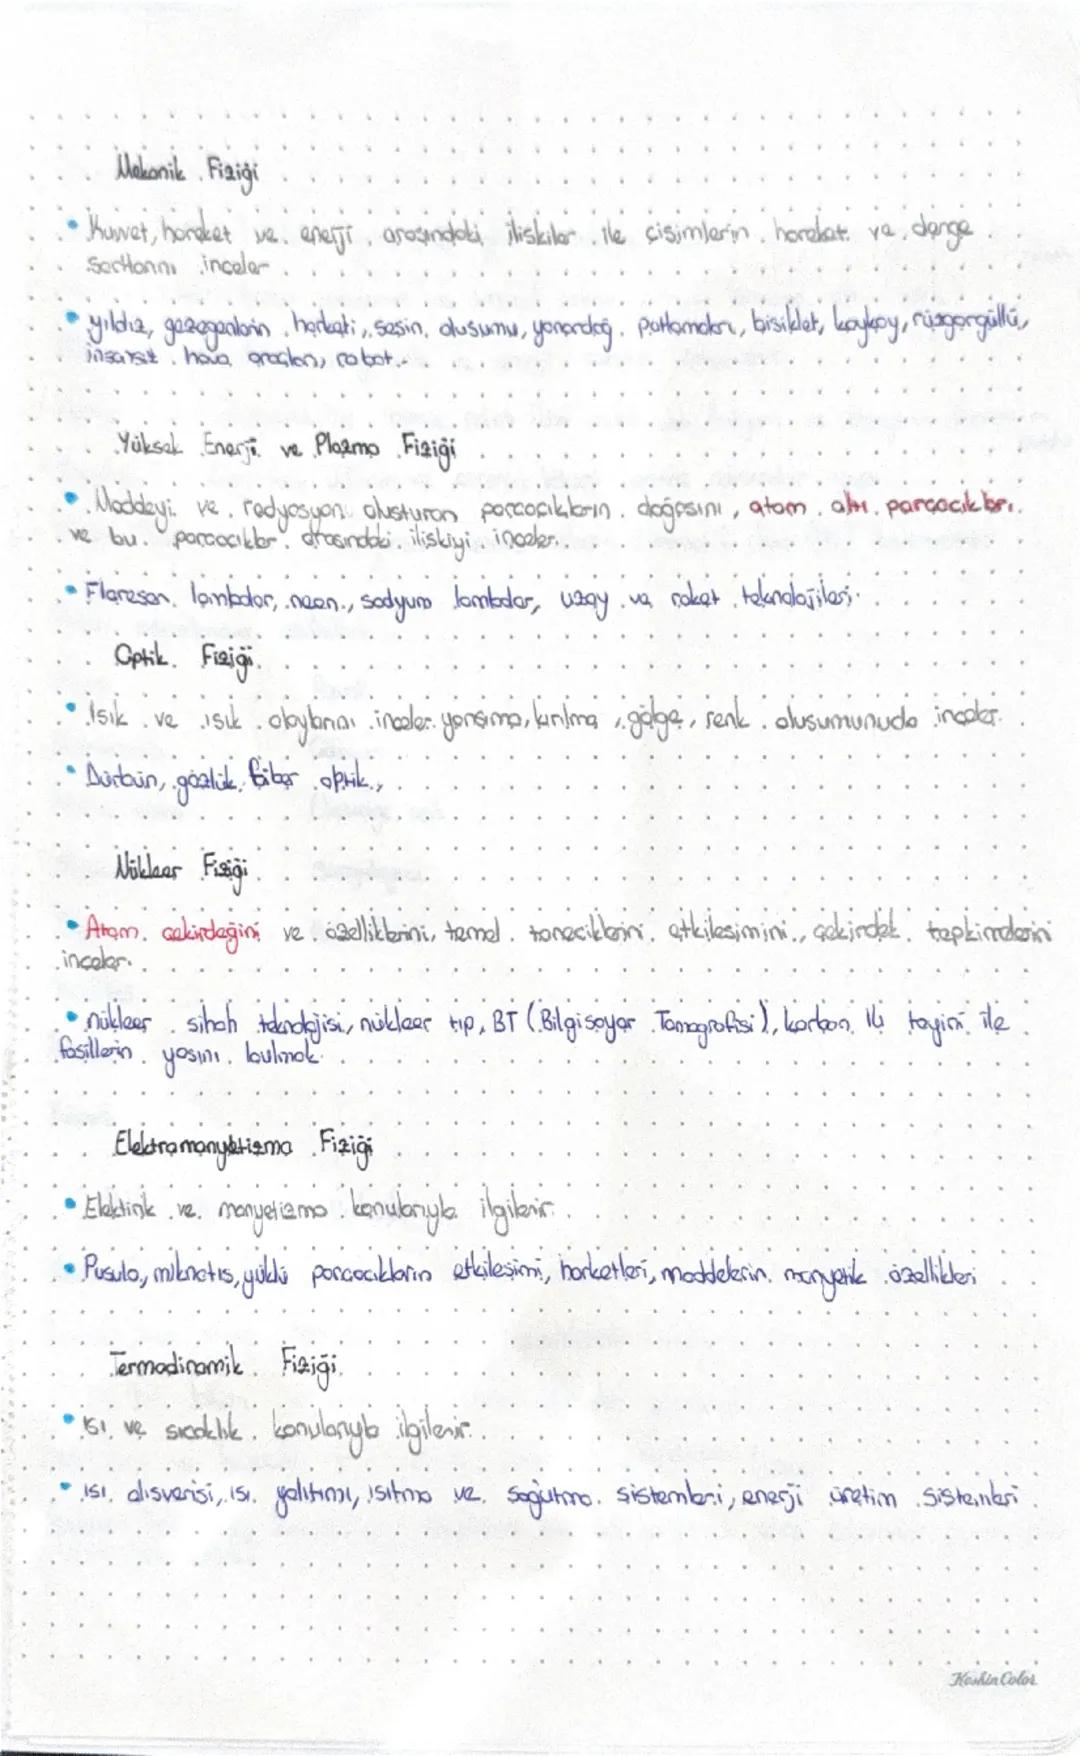 Mekanik Fiziği
• Kuvvet, hareket ve enerji arasındaki ilişkiler ile cisimlerin hareket ve denge
şartlarını inceler
• yıldız, gezegenlerin harketi, sesin oluşumu, yanardağ patlamaları, bisiklet, kaykay, rüzgargüllü,
insansız hava araçları, robot..
Yüksek Enerji ve Plazma Fiziği
• Maddeyi ve radyasyon oluşturan parçacıkların doğasını, atom altı parçacıkları
ve bu parçacıklar arasındaki ilişkiyi inceler.
• Floresan lambalar, neon, sodyum lambalar, uzay ve roket teknolojileri.
Optik Fiziği
• Işık ve ışık olaylarını inceler. yansıma, kırılma, gölge, renk oluşumunuda inceler.
• Dürbün, gözlük, fiber optik.,
Nükleer Fiziği
• Atom çekirdeğini ve özelliklerini, temel taneciklerini etkileşimini, çekirdek tepkimelerini
inceler.
• nükleer silah teknolojisi, nükleer tıp, BT (Bilgisayar Tomografisi), karbon 14 tayini ile
fosillerin yaşını bulmak
Elektromanyetizma Fiziği
• Elektirik ve manyetizma konularıyla ilgilenir.
• Pusula, mıknatıs, yüklü parçacıkların etkileşimi, harketleri, maddelerin manyetik özellikleri
Termodinamik Fiziği
• ısı ve sıcaklık konularıyla ilgilenir.
• ısı alışverişi, ısı yalıtımı, ısıtma ve soğutma sistemleri, enerji üretim sistemleri
Keskin Color